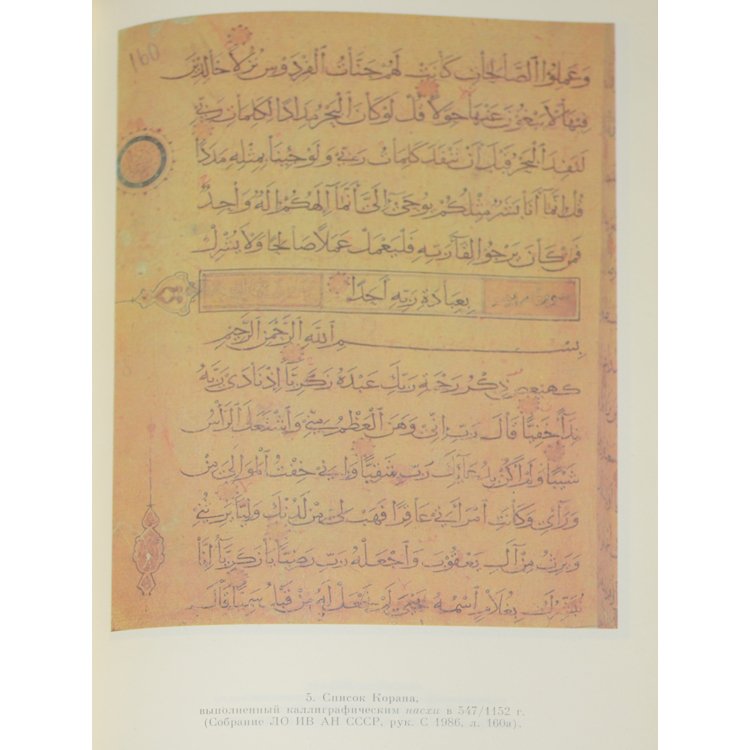 160
وعملوا الصالحات كانت لهم جنات الفردوس نزلا خالدين
فيها لا يبغون عنها حولا قل لو كان البحر مدادا لكلمات ربي
لنفد البحر قبل ان تنفد كلمات ربي ولو جئنا بمثله مددا
قل انما انا بشر مثلكم يوحى الي انما الهكم اله واحد
فمن كان يرجوا لقآ ربه فليعمل عملا صالحا ولا يشرك
بعبادة ربه احدا
بسم الله الرحمن الرحيم
كهيعص ذكر رحمة ربك عبده زكريا اذ نادى ربه
ندآ خفيا قال رب اني وهن العظم مني واشتعل الرأس
شيبا ولم اكن بدعائك رب شقيا واني خفت الموالي من
ورآي وكانت امرأتي عاقرا فهب لي من لدنك وليا يرثني
ويرث من آل يعقوب واجعله رب رضيا يا زكريا انا
نبشرك بغلام اسمه يحيى لم نجعل له من قبل سميا قال
5. Список Корана,
выполненный каллиграфическим насхи в 547/1152 г.
(Собрание ЛО ИВ АН СССР, рук. С 1986, л. 160а).